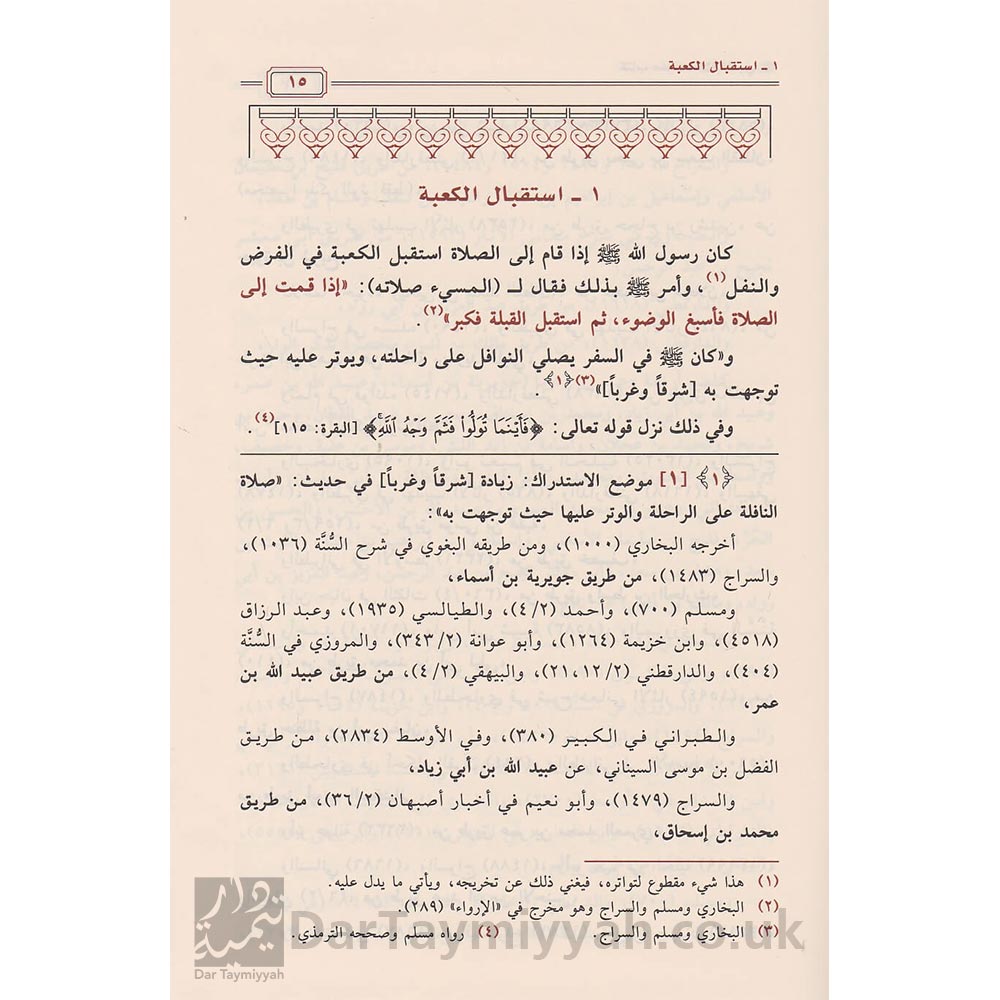 ١ ـ استقبال الكعبة
١٥
١ ـ استقبال الكعبة
كان رسول الله ﷺ إذا قام إلى الصلاة استقبل الكعبة في الفرض
والنفل(١)، وأمر ﷺ بذلك فقال لـ (المسيء صلاته): «إذا قمت إلى
الصلاة فأسبغ الوضوء، ثم استقبل القبلة فكبر»(٢).
و«كان ﷺ في السفر يصلي النوافل على راحلته، ويوتر عليه حيث
توجهت به [شرقاً وغرباً]»(٣)﴿١﴾.
وفي ذلك نزل قوله تعالى: ﴿فَأَيْنَمَا تُوَلُّوا۟ فَثَمَّ وَجْهُ ٱللَّهِ﴾ [البقرة: ١١٥](٤).
﴿١﴾ [١] موضع الاستدراك: زيادة [شرقاً وغرباً] في حديث: «صلاة
النافلة على الراحلة والوتر عليها حيث توجهت به»:
أخرجه البخاري (١٠٠٠)، ومن طريقه البغوي في شرح السُّنَّة (١٠٣٦)،
والسراج (١٤٨٣)، من طريق جويرية بن أسماء،
ومسلم (٧٠٠)، وأحمد (٤/٢)، والطيالسي (١٩٣٥)، وعبد الرزاق
(٤٥١٨)، وابن خزيمة (١٢٦٤)، وأبو عوانة (٣٤٣/٢)، والمروزي في السُّنَّة
(٤٠٤)، والدارقطني (٢١،١٢/٢)، والبيهقي (٤/٢)، من طريق عبيد الله بن
عمر،
والطبراني في الكبير (٣٨٠)، وفي الأوسط (٢٨٣٤)، من طريق
الفضل بن موسى السيناني، عن عبيد الله بن أبي زياد،
والسراج (١٤٧٩)، وأبو نعيم في أخبار أصبهان (٣٦/٢)، من طريق
محمد بن إسحاق،
(١) هذا شيء مقطوع لتواتره، فيغني ذلك عن تخريجه، ويأتي ما يدل عليه.
(٢) البخاري ومسلم والسراج وهو مخرج في «الإرواء» (٢٨٩).
(٣) البخاري ومسلم والسراج. (٤) رواه مسلم وصححه الترمذي.
دار تيمية
Dar Taymiyyah
DarTaymiyyah.co.uk